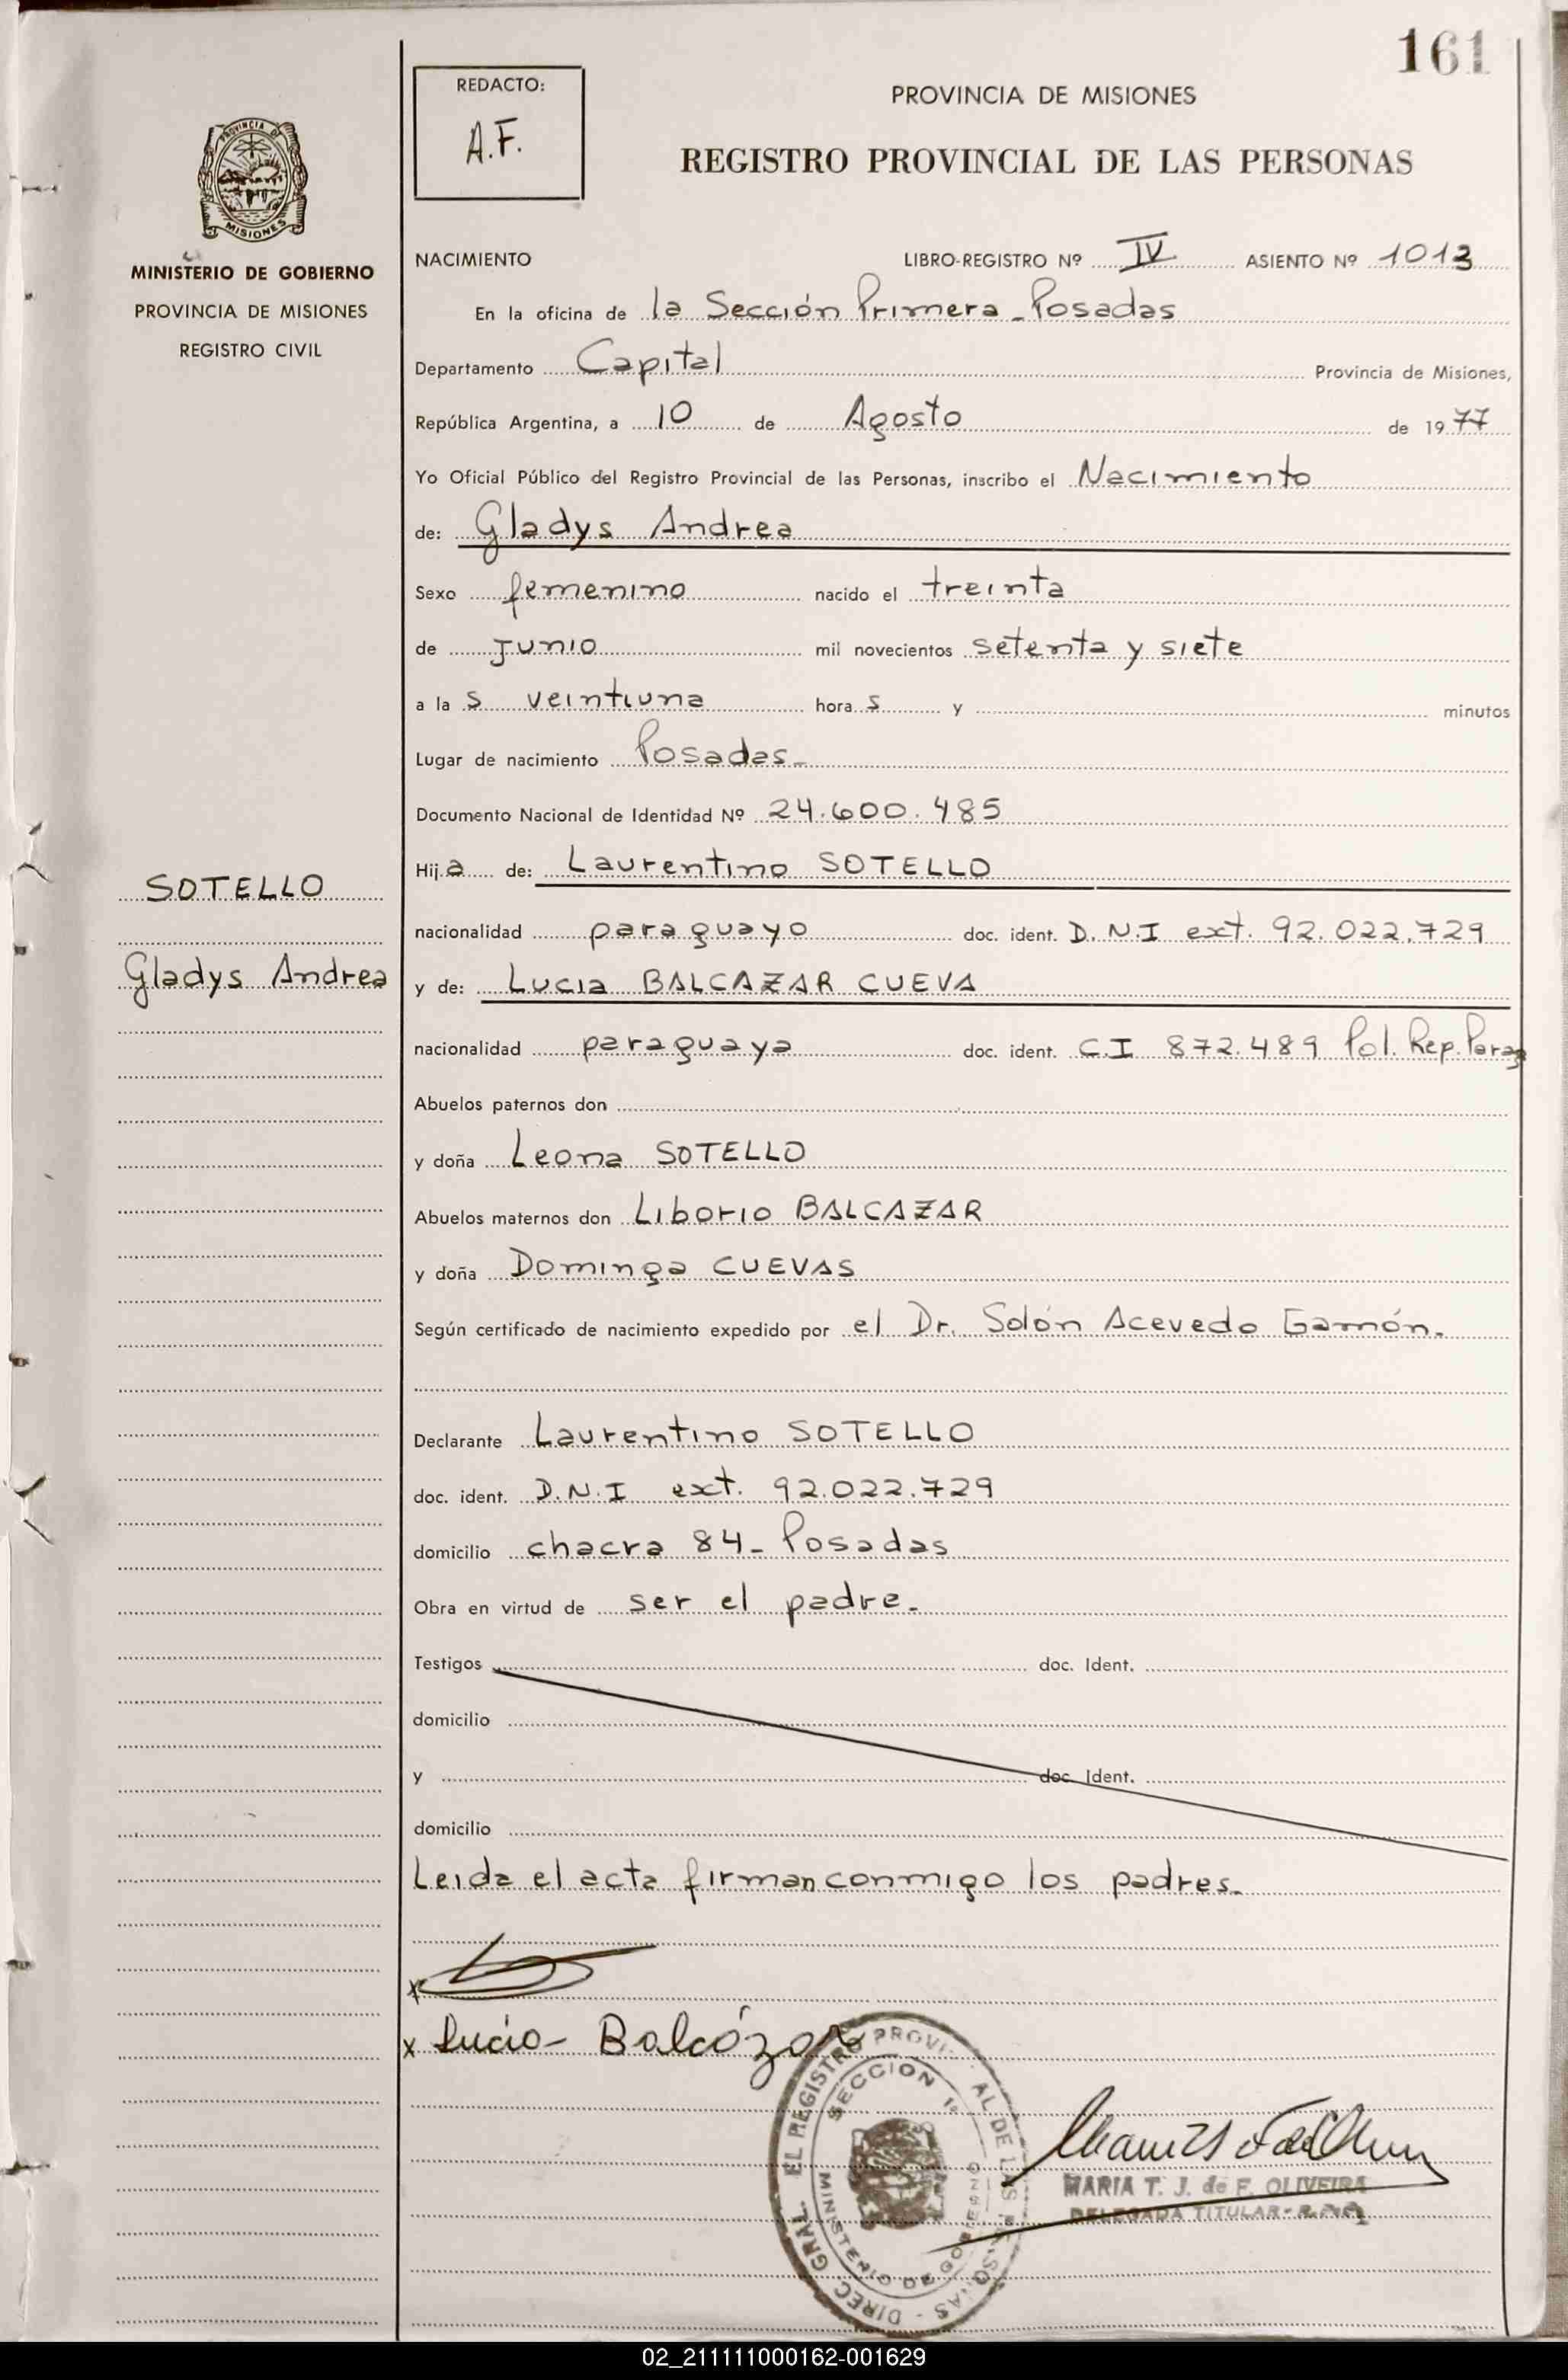 161
REDACTO:
A.F.
PROVINCIA DE MISIONES
REGISTRO PROVINCIAL DE LAS PERSONAS
PROVINCIA DE
MISIONES
MINISTERIO DE GOBIERNO
PROVINCIA DE MISIONES
REGISTRO CIVIL
NACIMIENTO LIBRO-REGISTRO Nº IV ASIENTO Nº 1013
En la oficina de la Sección Primera - Posadas
Departamento Capital Provincia de Misiones,
República Argentina, a 10 de Agosto de 1977
Yo Oficial Público del Registro Provincial de las Personas, inscribo el Nacimiento
de: Gladys Andrea
Sexo femenino nacido el treinta
de Junio mil novecientos setenta y siete
a la s veintiuna hora s y minutos
Lugar de nacimiento Posadas-
Documento Nacional de Identidad Nº 24.600.485
Hij a de: Laurentino SOTELLO
SOTELLO
nacionalidad paraguayo doc. ident. D.N.I ext. 92.022.729
Gladys Andrea
y de: Lucia BALCAZAR CUEVA
nacionalidad paraguaya doc. ident. C.I 872.489 Pol. Rep. Parag
Abuelos paternos don
y doña Leona SOTELLO
Abuelos maternos don Liborio BALCAZAR
y doña Dominga CUEVAS
Según certificado de nacimiento expedido por el Dr. Solón Acevedo Gamón.
Declarante Laurentino SOTELLO
doc. ident. D.N.I ext. 92.022.729
domicilio chacra 84- Posadas
Obra en virtud de ser el padre.
Testigos doc. Ident.
domicilio
y doc. Ident.
domicilio
Leida el acta firman conmigo los padres.
x
x Lucia Balcázar
DIREC. GRAL. EL REGISTRO PROVI AL DE LAS PERSONAS
SECCION 1ª
MINISTERIO DE GOBIERNO
MARIA T. J. de F. OLIVEIRA
DELEGADA TITULAR
02_211111000162-001629